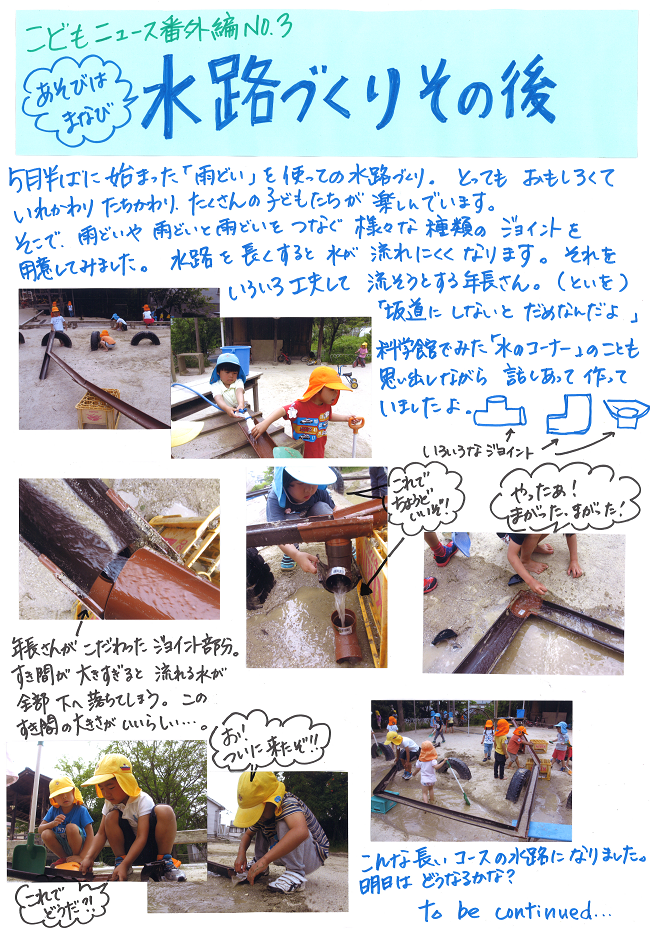 こどもニュース番外編NO.3
あそびは
まなび
水路づくりその後
5月半ばに始まった「雨どい」を使っての水路づくり。とっても おもしろくて
いれかわり たちかわり、たくさんの子どもたちが 楽しんでいます。
そこで、雨どいや 雨どいと雨どいを つなぐ 様々な 種類の ジョイントを
用意してみました。 水路を 長くすると 水が 流れにくく なります。 それを
いろいろ工夫して 流そうとする年長さん。(といを)
「坂道に しないと だめなんだよ」
科学館でみた「水のコーナー」のことも
思い出しながら 話しあって 作って
いましたよ。
いろいろなジョイント
これで
ちょうど
いいぞ!
やったぁ!
まがった、まがった!
年長さんが こだわった ジョイント部分。
すき間が 大きすぎると 流れる水が
全部 下へ 落ちてしまう。 この
すき間の大きさが いいらしい…。
お!
ついに来たぞ!!
これで
どうだ?!
こんな 長い コースの水路に なりました。
明日は どうなるかな?
to be continued...